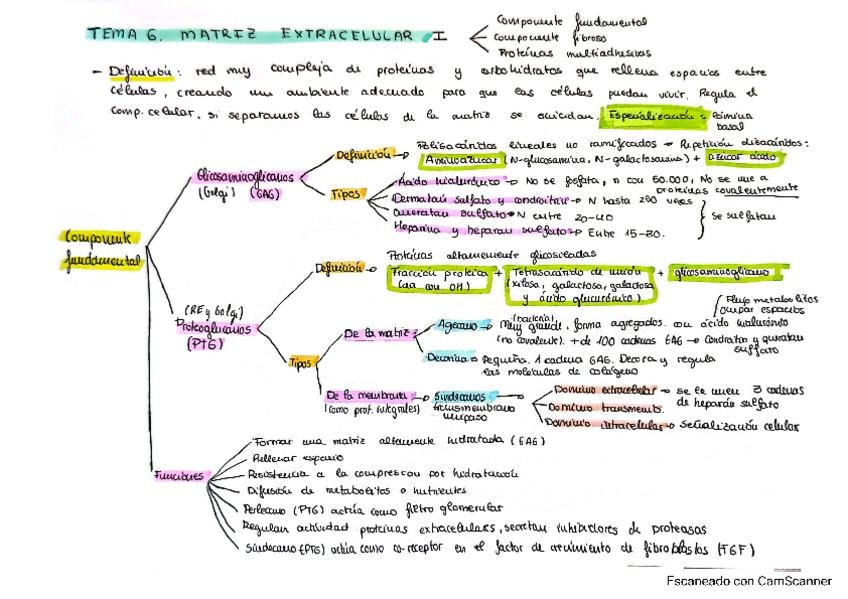 TEMA 6. MATRIZ EXTRACELULAR I
Componente fundamental
Componente fibroso
Proteínas multiadhesivas
- Definición: red muy compleja de proteínas y carbohidratos que rellena espacios entre
células, creando un ambiente adecuado para que las células puedan vivir. Regula el
comp. celular, si separamos las células de la matriz se suicidan. Especialización: Lámina
basal
Componente
fundamental
Glicosaminoglicanos
(Golgi) (GAG)
Definición → Polisacáridos lineales no ramificados → Repetición disacáridos:
Aminoazúcar (N-glucosamina, N-galactosamina) + azúcar ácido
Tipos
Ácido hialurónico → No se fosfata, n con 50.000, No se une a
proteínas covalentemente
Dermatán sulfato y condroitín → N hasta 250 veces
Queratán sulfato → N entre 20-40
Heparina y heparan sulfato → Entre 15-30.
Se sulfatan
(RE y Golgi)
Proteoglicanos
(PTG)
Definición → Proteínas altamente glicosiladas
Fracción proteica + Tetrasacárido de unión + glicosaminoglicano
(aa con OH) (xilosa, galactosa, galactosa
y ácido glucurónico)
Tipos
De la matriz
Flujo metabolitos
ocupar espacios
Agrecano → Muy grande, forma agregados con ácido hialurónico
(no covalente). + de 100 cadenas GAG → Condratos y queratan
sulfato
Decorina → Pequeña. 1 cadena GAG. Decora y regula
las moléculas de colágeno
De la membrana → Sindecanos
(como prot. integrales) transmembrana
unipaso
Dominio extracelular → se le unen 3 cadenas
de heparán sulfato
Dominio transmemb.
Dominio intracelular → Señalización celular
Funciones
Formar una matriz altamente hidratada (GAG)
Rellenar espacio
Resistencia a la compresión por hidratación
Difusión de metabolitos o nutrientes
Perlecano (PTG) actúa como filtro glomerular
Regulan actividad proteínas extracelulares, secretan inhibidores de proteasas
Sindecano (PTG) actúa como co-receptor en el factor de crecimiento de fibroblastos (FGF)
Escaneado con CamScanner